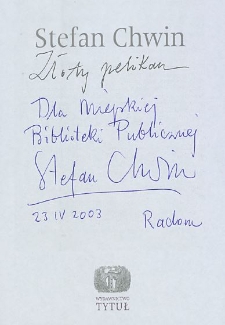 Stefan Chwin
Złoty pelikan
Dla Miejskiej
Biblioteki Publicznej
Stefan Chwin
23 IV 2003 Radom
WYDAWNICTWO
TYTUŁ